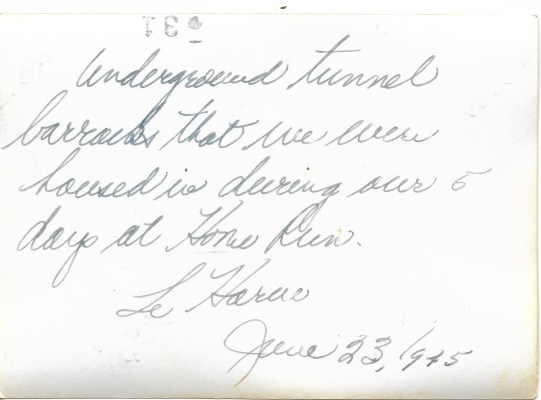 Underground tunnel
barracks that we were
housed in during our 5
days at Home Run.
Le Havre
June 23, 1945